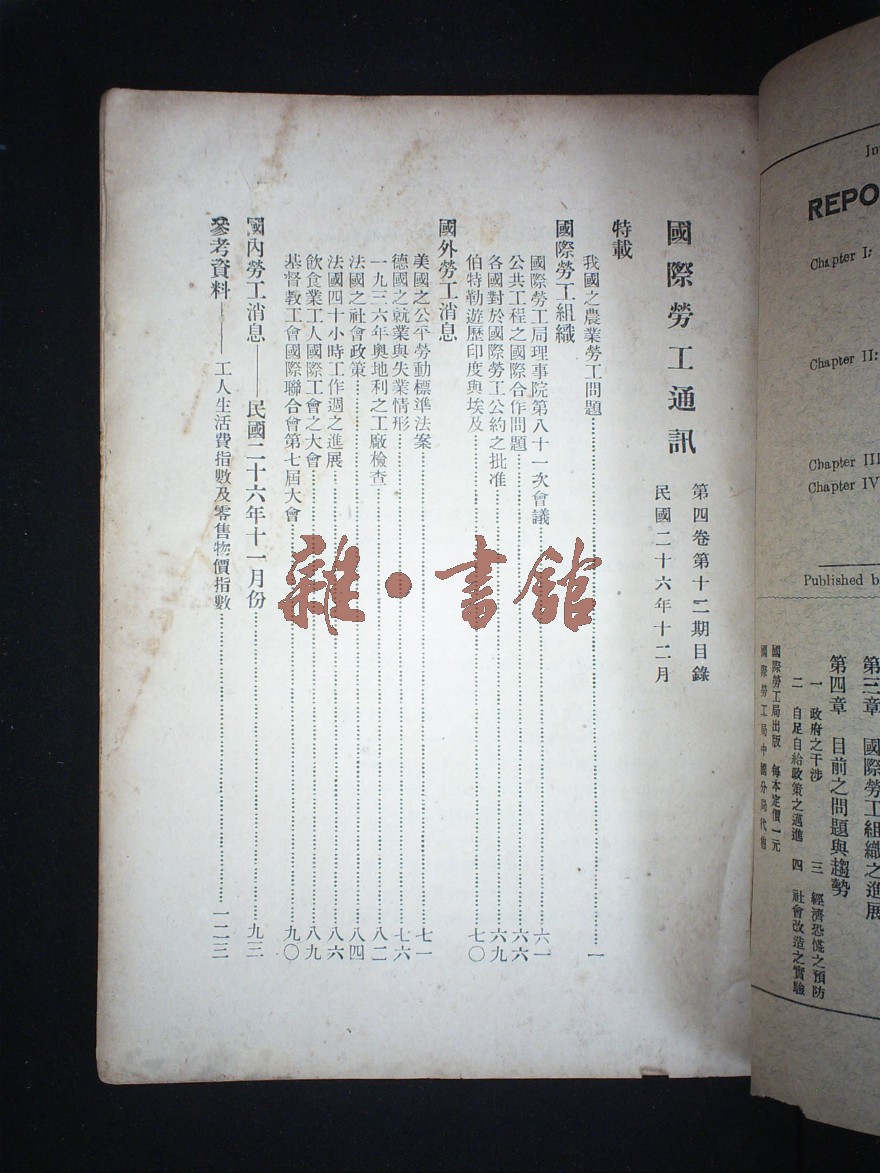 In
REPO
Chapter I:
Chapter II:
Chapter III
Chapter IV
Published b
第三章　國際勞工組織之進展
第四章　目前之問題與趨勢
一　政府之干涉　三　經濟恐慌之預防
二　自足自給政策之邁進　四　社會改造之實驗
國際勞工局出版　每本定價一元
國際勞工局中國分局代售
國際勞工通訊
第四卷第十二期目錄
民國二十六年十二月
特載
我國之農業勞工問題……一
國際勞工組織
國際勞工局理事院第八十一次會議……六一
公共工程之國際合作問題……六六
各國對於國際勞工公約之批准……六九
伯特勒遊歷印度與埃及……七〇
國外勞工消息
美國之公平勞動標準法案……七一
德國之就業與失業情形……七六
一九三六年奧地利之工廠檢查……八二
法國之社會政策……八四
法國四十小時工作週之進展……八六
飲食業工人國際工會之大會……八九
基督教工會國際聯合會第七屆大會……九〇
國內勞工消息——民國二十六年十一月份……九三
參考資料——工人生活費指數及零售物價指數……一二三
雜·書館